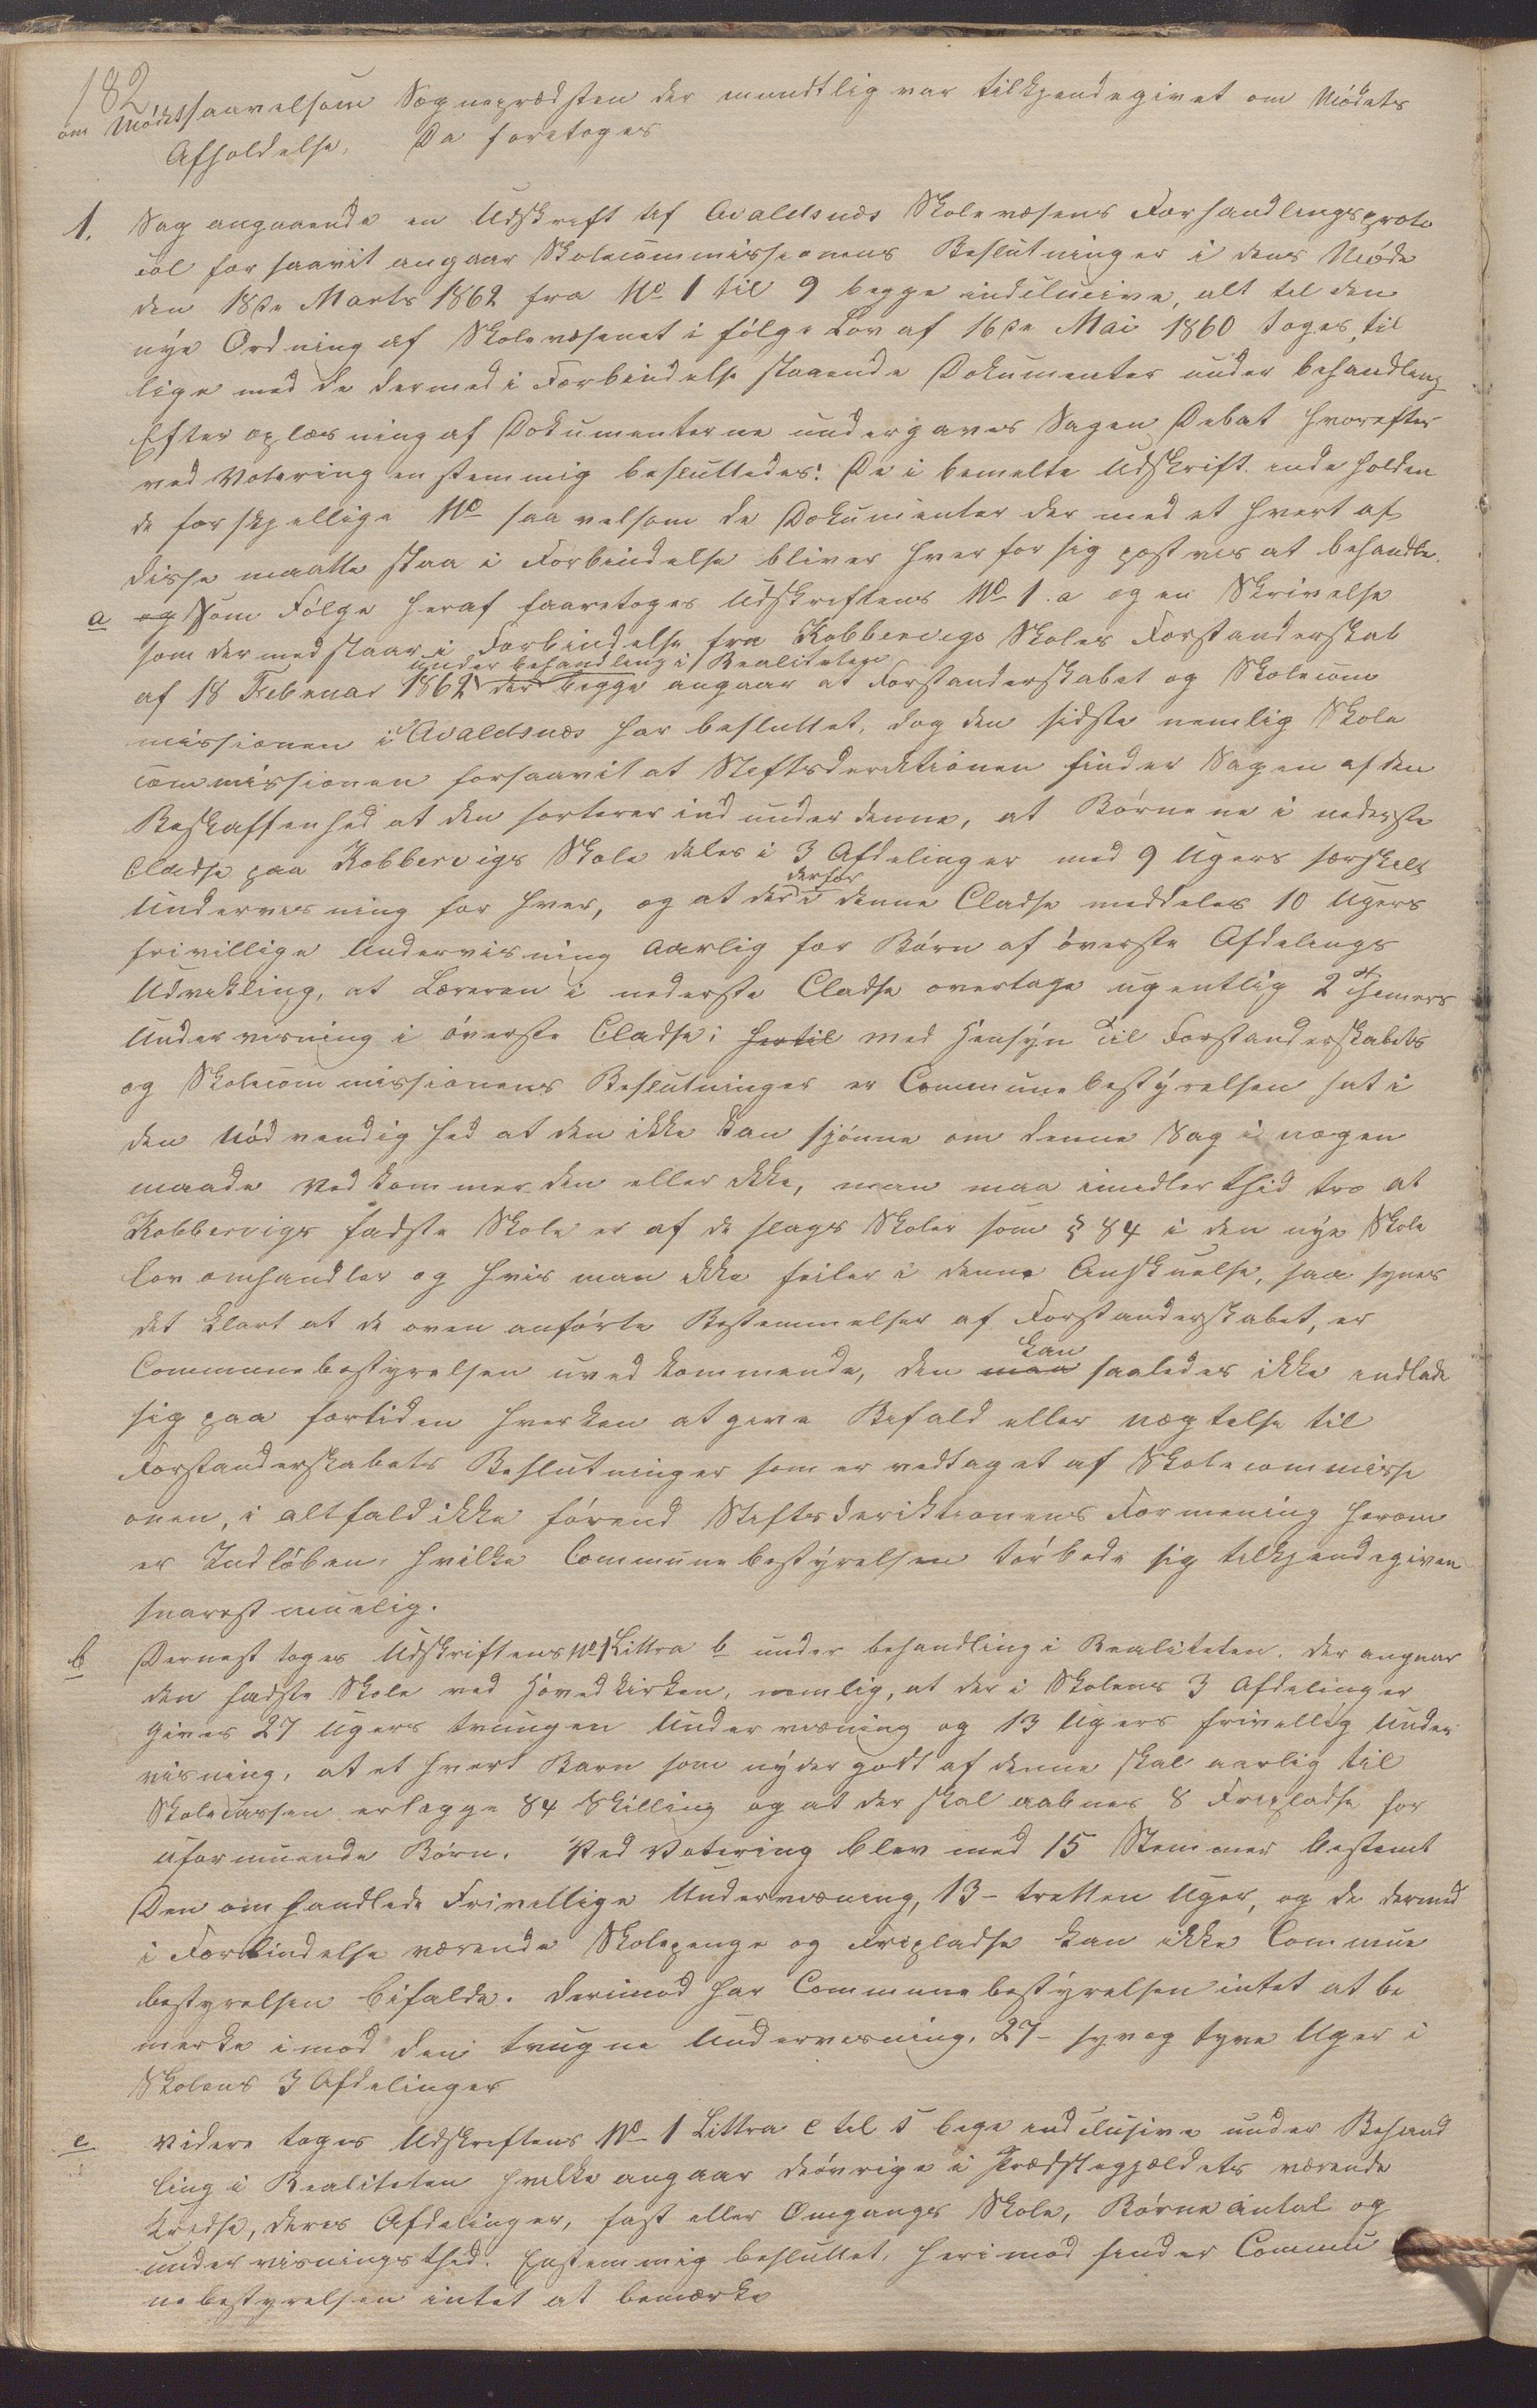 182
om Mödet saavelsom Sogneprædsten der mundtlig var tilkjendegivet om Mödets
Afholdelse. Da foretoges
1. Sag angaaende en Udskrift af Avaldsnæs Skolevæsens Forhandlingsproto
col for saavit angaar Skolecommissionens Beslutninger i dens Möde
den 18de Marts 1862 fra No 1 til 9 begge indclucive, alt til den
nÿe Ordning af Skolevæsenet i fölge Lov af 16de Mai 1860 toges, til
lige med de dermed i Forbindelse staaende Dokumenter under behandling
Efter oplæsning af Dokumenterne undergaves Sagen Debat hvorefter
ved Votering enstemmig besluttedes: De i bemelte Udskrift inde holden
de forskjellige No saavelsom de Dokumenter der med et hvert af
disse maatte staa i Forbindelse bliver hver for sig postvis at behandle.
a og Som Fölge heraf faaretoges Udskriftens No 1. a og en Skrivelse
som dermed staar i Forbindelse fra Kobbervigs Skoles Forstanderskab
under behandling i Realiteten
af 18 Februar 1862 der begge angaar at Forstanderskabet og Skolecom
missionen i Avaldsnæs har besluttet, dog den sidste nemlig Skole
commissionen forsaavit at Stiftsderektionen finder Sagen af den
Beskaffenhed at den sorterer ind under denne, at Börnene i nederste
Cladse paa Kobbervigs Skole deles i 3 Afdelinger med 9 Ugers særskilt
derfor
Undervisning for hver, og at der i denne Cladse meddeles 10 Ugers
frivillige Undervisning aarlig for Börn af överste Afdelings
Udvikling, at Læreren i nederste Cladse overtage ugentlig 2 Timers
Undervisning i överste Cladse; hertil med Hensÿn til Forstanderskabets
og Skolecommissionens Beslutninger er Communebestÿrelsen sat i
den Nödvendighed at den ikke kan skjönne om denne Sag i nogen
maade vedkommer den eller ikke, man maa imidlerthid tro at
Kobbervigs fadste Skole er af de slags Skoler som § 84 i den nÿe Skole
lov omhandler og hvis man ikke feiler i denne Anskuelse, saa synes
det klart at de oven anförte Bestemmelser af Forstanderskabet, er
kan
Communebestyrelsen uvedkommende, den man saaledes ikke indlade
sig paa fortiden hverken at give Bifald eller nægtelse til
Forstanderskabets Beslutninger som er vedtaget af Skolecommissi
onen, i altfald ikke förend Stiftsderiktionens Formening herom
er Indlöben, hvilke Communebestÿrelsen tör bede sig tilkjendegiven
snarest muelig.
b Dernest toges Udskriftens No 1 Littra b under behandling i Realiteten. der angaar
den fadste Skole ved Hövedkirken, nemlig, at der i Skolens 3 Afdelinger
gives 27 Ugers tvungen Undervisning og 13 Ugers frivellig Under
visning, at et hvert Barn som nÿder godt af denne skal aarlig til
Skolecassen erlægge 84 Skilling og at der skal aabnes 8 Fripladse for
uformuende Börn. Ved Votering blev med 15 Stemmer bestemt
Den omhandlede Frivellige Undervisning, 13 - tretten Uger, og de dermed
i Forbindelse værende Skolepenge og Fripladse kan ikke Commune
bestyrelsen bifalde. derimod har Communebestÿrelsen intet at be
merke imod den tvugne Undervisning, 27 - syv og tyve Uger i
Skolens 3 Afdelinger
c Videre toges Udskriftens No 1 Littra c til t bege indclusive under Behand
ling i Realiteten hvilke angaar deövrige i Prædstegjældets værende
Kredse, deres Afdelinger, fast eller Omgangs Skole, Börne antal og
undervisningsthid. Enstemmig besluttet, herimod finder Commu
nebestyrelsen intet at bemærke